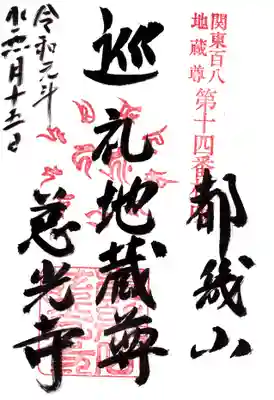 関東百八
地蔵尊
第十四番
都幾山
巡礼地蔵尊
慈光寺
令和元年